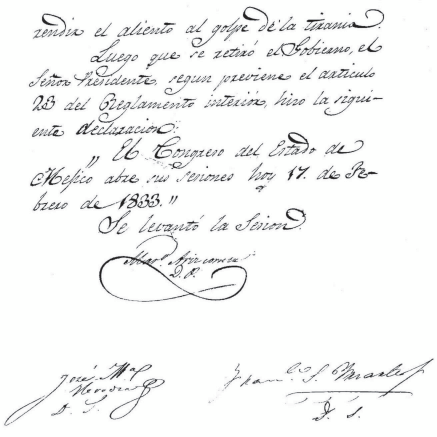 rendir el aliento al golpe de la tirania.
Luego que se retiró el Gobierno, el
Señor Presidente, segun previene el articulo
23 del Reglamento interior, hizo la siguí-
ente declaracion:
„ El Congreso del Estado de
Mejico abre sus sesiones hoy 17. de Fe-
brero de 1833.„
Se levantó la Sesion.
D. P.
José Ma
D. S.
D. S.